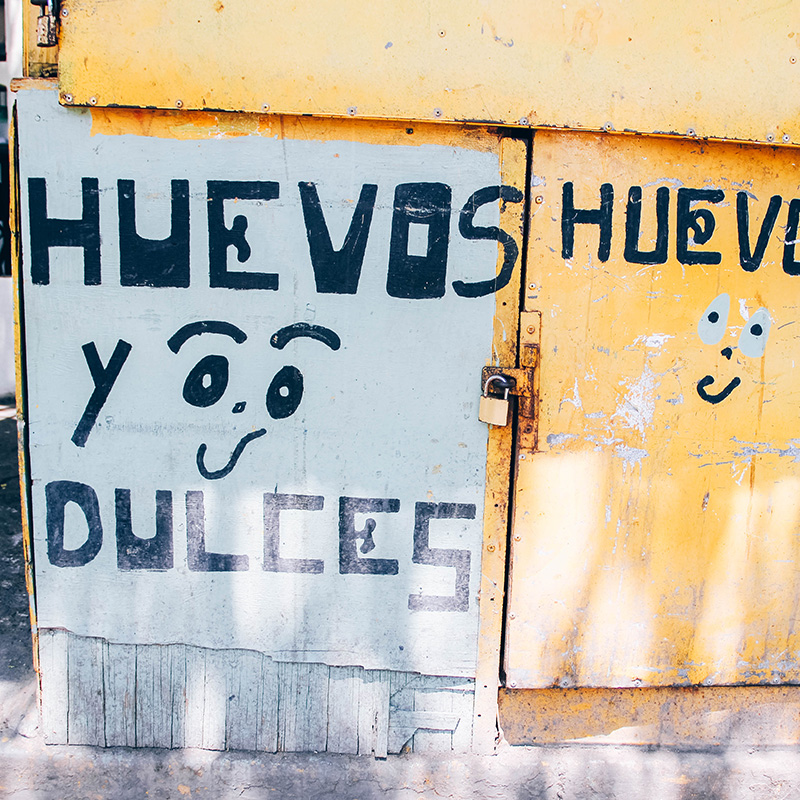 HUEVOS
Y
DULCES
HUEVO